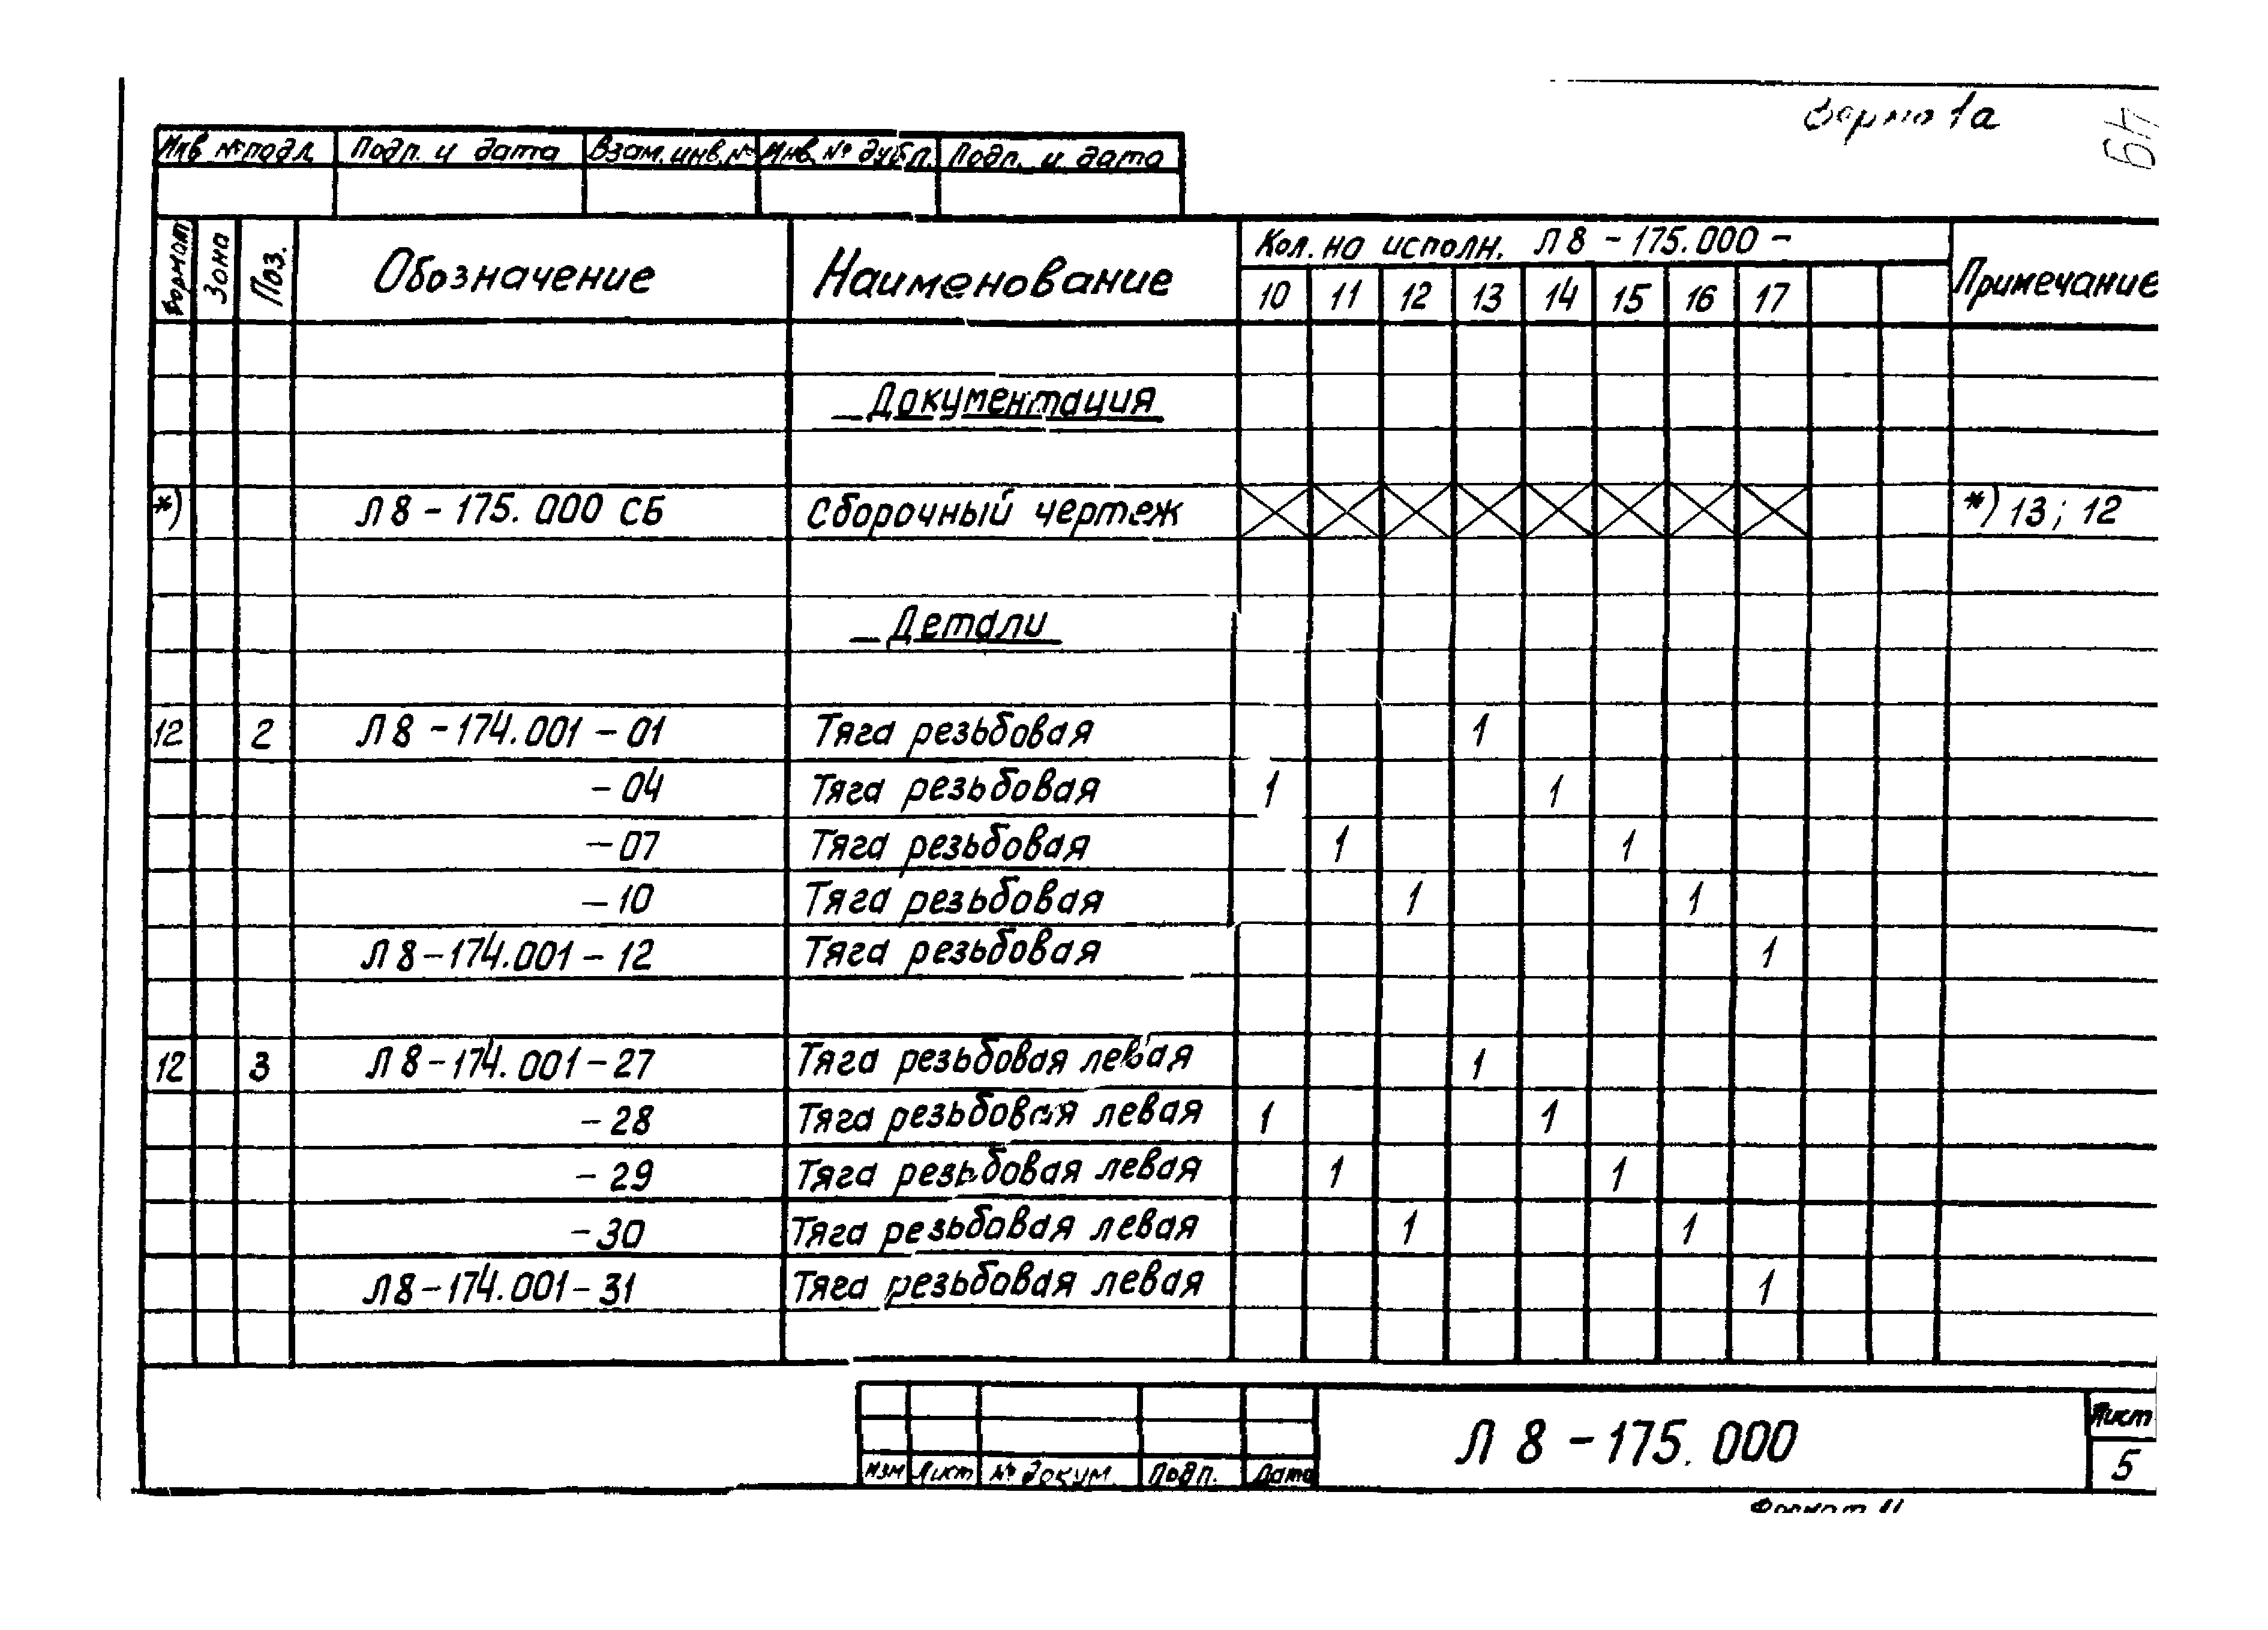 Форма 1а
49
Инв № подл Подп. и дата Взам. инв. № Инв № дубл. Подп. и дата
Формат Зона Поз. Обозначение Наименование Кол. на исполн. Л 8 - 175.000 - Примечание
10 11 12 13 14 15 16 17
Документация
*) Л 8 - 175. 000 СБ Сборочный чертеж *) 13; 12
Детали
12 2 Л 8 - 174.001 - 01 Тяга резьбовая 1
- 04 Тяга резьбовая 1 1
- 07 Тяга резьбовая 1 1
- 10 Тяга резьбовая 1 1
Л 8 - 174.001 - 12 Тяга резьбовая 1
12 3 Л 8 - 174. 001 - 27 Тяга резьбовая левая 1
- 28 Тяга резьбовая левая 1 1
- 29 Тяга резьбовая левая 1 1
- 30 Тяга резьбовая левая 1 1
Л 8 - 174.001 - 31 Тяга резьбовая левая 1
Изм Лист № докум. Подп. Дата Л 8 - 175. 000 Лист
5
Формат 11